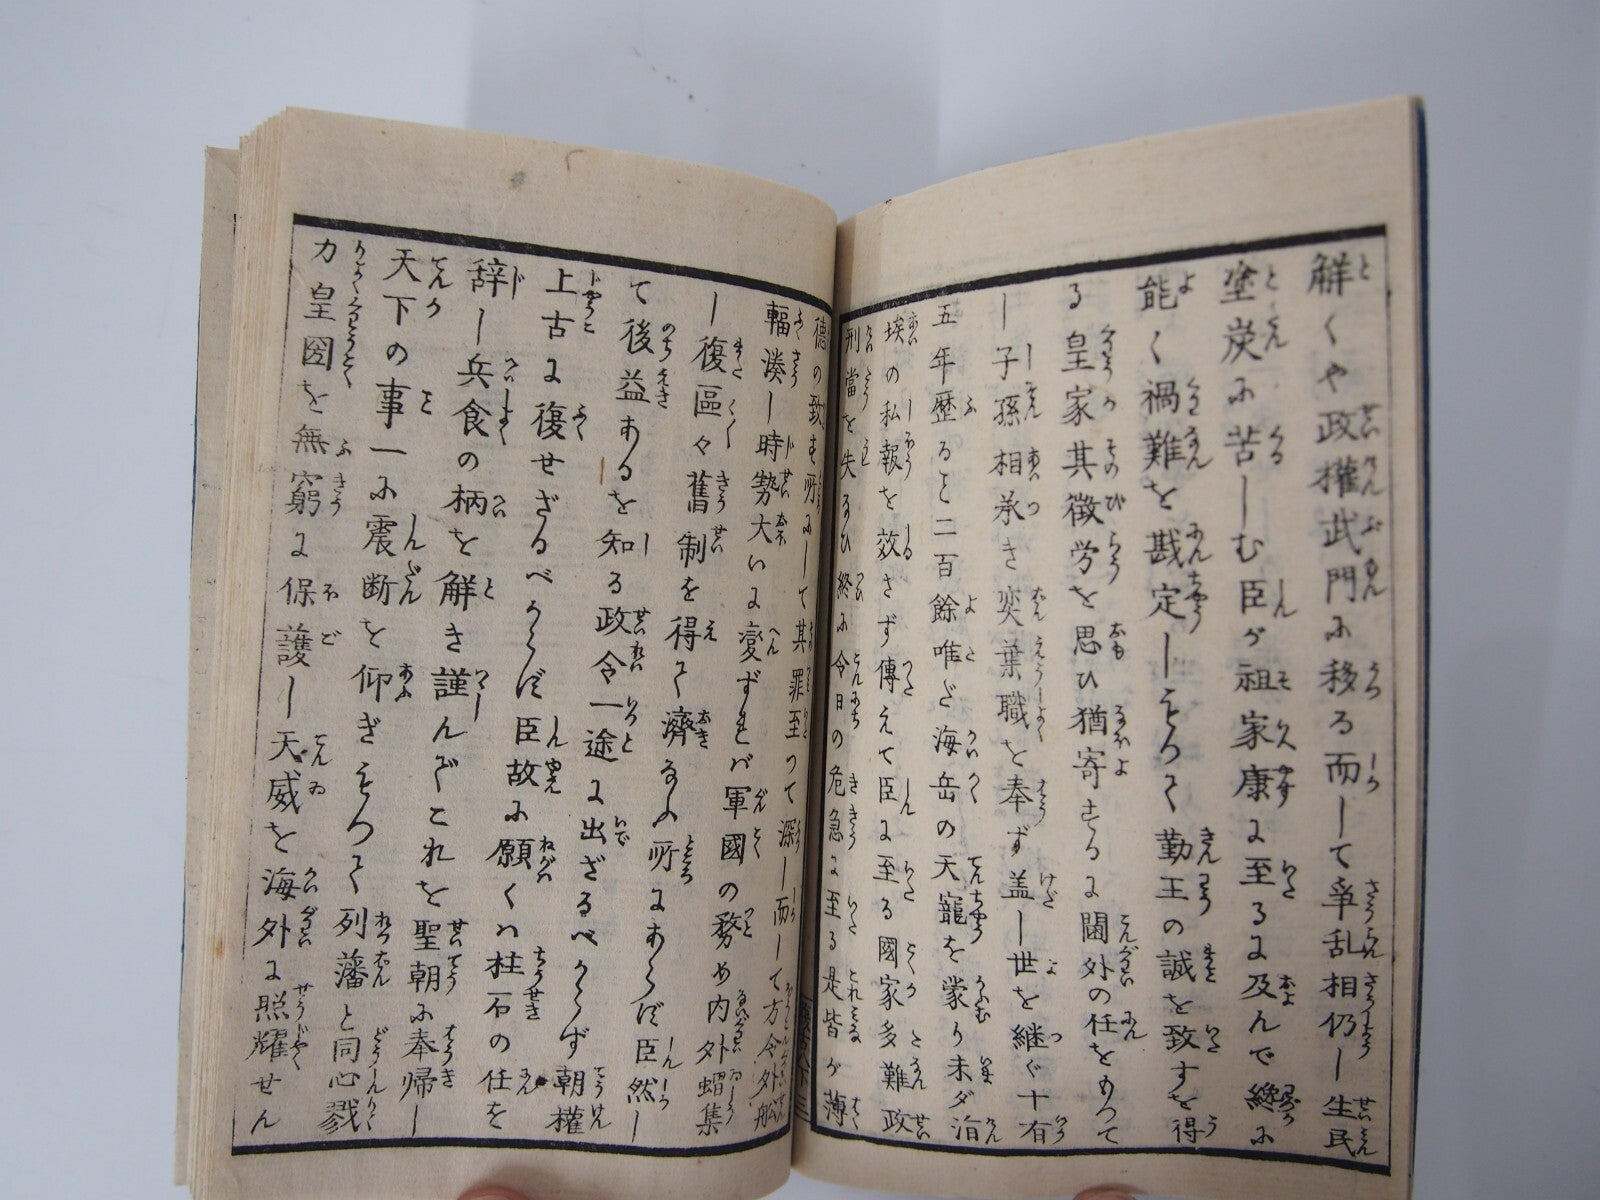 解くや政權武門に移る而して爭乱相仍し生民
塗炭に苦しむ臣が祖家康に至るに及んで終に
能く禍難を戡定しもつて勤王の誠を致すを得
る皇家其徴労を思ひ猶寄するに閫外の任をもつて
し子孫相承き奕葉職を奉ず盖し世を継ぐ十有
五年歴ること二百餘唯だ海岳の天寵を蒙り未ダ涓
埃の私報を效さず傳えて臣に至る國家多難政
刑當を失なひ終に今日の危急に至る是皆が薄
徳の致す所にして其罪至つて深し而して方今外舩
輻湊し時勢大いに変ずれバ軍國の務め内外蝟集
し復區々舊制を得て濟なふ所にあらず臣然し
て後益あるを知る政令一途に出ざるべからず朝權
上古に復せざるべからず臣故に願くハ柱石の任を
辞し兵食の柄を解き謹んでこれを聖朝に奉帰し
天下の事一に震断を仰ぎもつて列藩と同心戮
力皇圀を無窮に保護し天威を海外に照耀せん